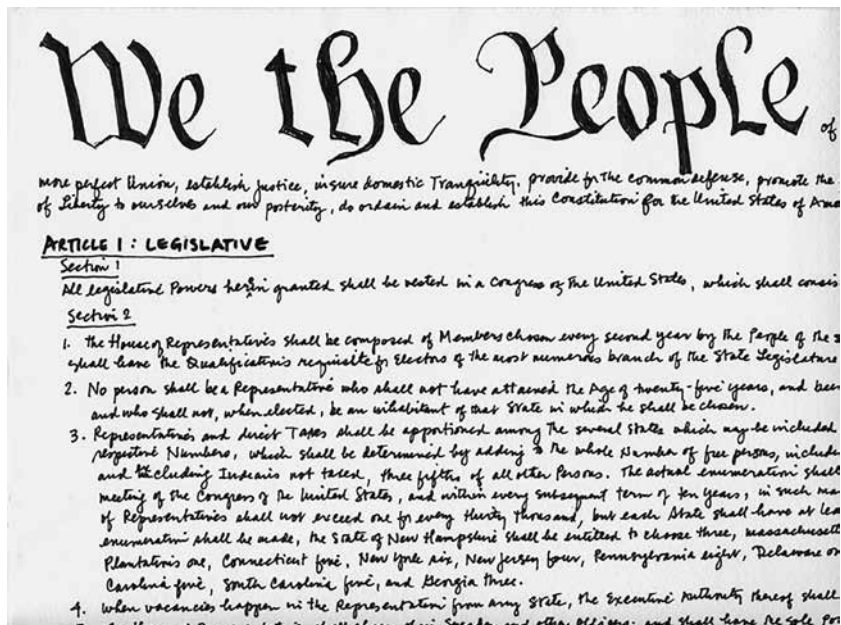 We the People of
more perfect Union, establish justice, insure domestic Tranquility, provide for the common defense, promote the
of Liberty to ourselves and our posterity, do ordain and establish this Constitution for the United States of Ame
ARTICLE I: LEGISLATIVE
Section 1
All legislative Powers herein granted shall be vested in a Congress of the United States, which shall consis
Section 2
1. the House of Representatives shall be composed of Members chosen every second year by the People of the s
shall have the Qualifications requisite for Electors of the most numerous branch of the State Legislature
2. No person shall be a Representative who shall not have attained the Age of twenty-five years, and been
and who shall not, when elected, be an inhabitant of that State in which he shall be chosen.
3. Representatives and direct Taxes shall be apportioned among the several States which may be included
respective Numbers, which shall be determined by adding to the whole Number of free persons, includin
and excluding Indians not taxed, three fifths of all other Persons. The actual enumeration shall
meeting of the Congress of the United States, and within every subsequent term of ten years, in such man
of Representatives shall not exceed one for every thirty thousand, but each State shall have at lea
enumeration shall be made, the State of New Hampshire shall be entitled to choose three, massachusett
Plantations one, Connecticut five, New York six, New Jersey four, Pennsylvania eight, Delaware on
Carolina five, South Carolina five, and Georgia three.
4. when vacancies happen in the Representation from any State, the Executive Authority thereof shall
Speaker and other Officers; and shall have the sole Pow